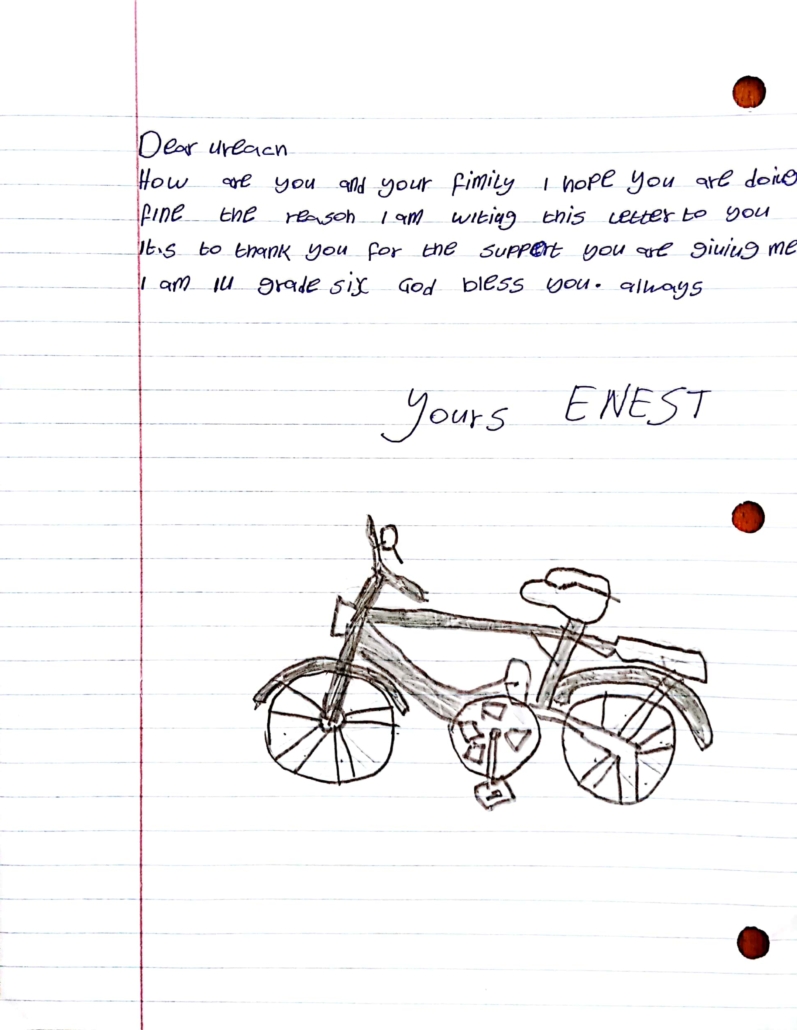 Dear ureach
How are you and your fimily I hope you are doing
fine the reason I am witing this letter to you
It.s to thank you for the support you are giving me
I am in grade six God bless you. always
Yours ENEST